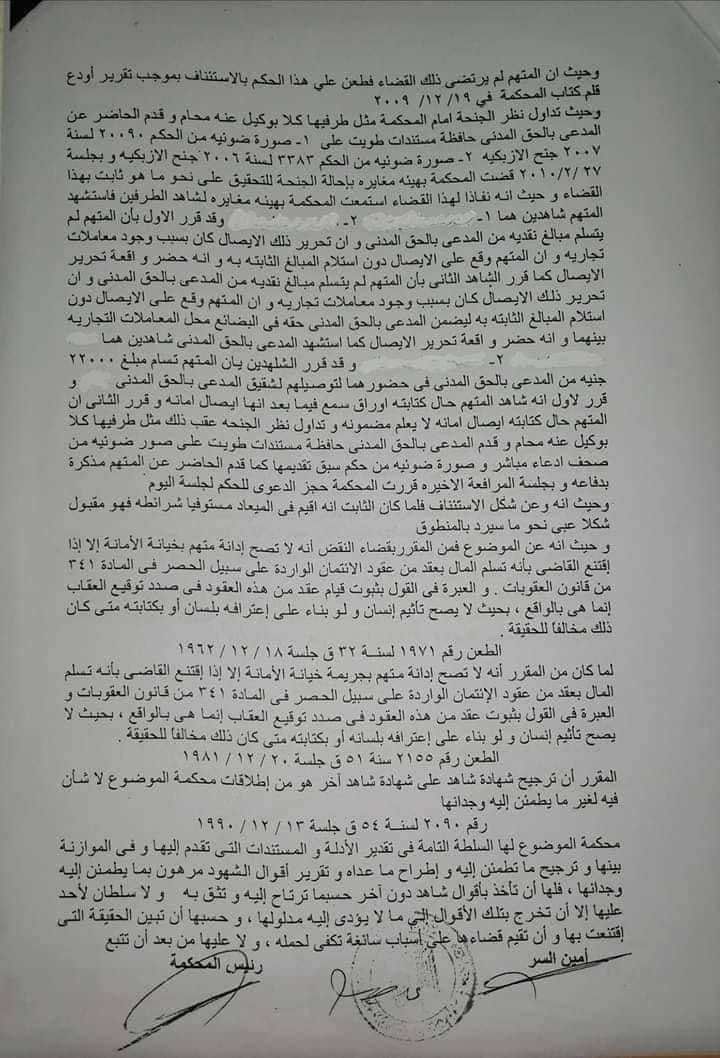 وحيث ان المتهم لم يرتضى ذلك القضاء فطعن علي هذا الحكم بالاستئناف بموجب تقرير أودع
قلم كتاب المحكمة في ١٩/ ١٢/ ٢٠٠٩
وحيث تداول نظر الجنحة امام المحكمة مثل طرفيها كلا بوكيل عنه محام و قدم الحاضر عن
المدعى بالحق المدنى حافظة مستندات طويت على ١- صورة ضوئيه من الحكم ٢٠٠٩٠ لسنة
٢٠٠٧ جنح الازبكيه ٢- صورة ضوئيه من الحكم ٣٣٨٣ لسنة ٢٠٠٦ جنح الازبكيه و بجلسة
٢٧ /٢/ ٢٠١٠ قضت المحكمة بهيئه مغايره بإحالة الجنحة للتحقيق على نحو ما هو ثابت بهذا
القضاء و حيث انه نفاذا لهذا القضاء استمعت المحكمة بهيئه مغايره لشاهد الطرفين فاستشهد
المتهم شاهدين هما ١- ٢- وقد قرر الاول بأن المتهم لم
يتسلم مبالغ نقديه من المدعى بالحق المدنى و ان تحرير ذلك الايصال كان بسبب وجود معاملات
تجاريه و ان المتهم وقع على الايصال دون استلام المبالغ الثابته به و انه حضر و اقعة تحرير
الايصال كما قرر الشاهد الثانى بأن المتهم لم يتسلم مبالغ نقديه من المدعى بالحق المدنى و ان
تحرير ذلك الايصال كان بسبب وجود معاملات تجاريه و ان المتهم وقع على الايصال دون
استلام المبالغ الثابته به ليضمن المدعى بالحق المدنى حقه فى البضائع محل المعاملات التجاريه
بينهما و انه حضر و اقعة تحرير الايصال كما استشهد المدعى بالحق المدنى شاهدين هما
٢- و قد قرر الشلهدين بان المتهم تسام مبلغ ٢٢٠٠٠
جنيه من المدعى بالحق المدنى فى حضور هما لتوصيلهم لشقيق المدعى بالحق المدنى و
قرر لاول انه شاهد المتهم حال كتابته اوراق سمع فيما بعد انها ايصال امانه و قرر الثانى ان
المتهم حال كتابته ايصال امانه لا يعلم مضمونه و تداول نظر الجنحه عقب ذلك مثل طرفيها كلا
بوكيل عنه محام و قدم المدعى بالحق المدنى حافظة مستندات طويت على صور ضوئيه من
صحف ادعاء مباشر و صورة ضوئيه من حكم سبق تقديمها كما قدم الحاضر عن المتهم مذكرة
بدفاعه و بجلسة المرافعة الاخيره قررت المحكمة حجز الدعوى للحكم لجلسة اليوم
وحيث انه وعن شكل الاستئناف فلما كان الثابت انه اقيم فى الميعاد مستوفيا شرائطه فهو مقبول
شكلا عبى نحو ما سيرد بالمنطوق
و حيث انه عن الموضوع فمن المقرر بقضاء النقض أنه لا تصح إدانة متهم بخيانة الأمانة إلا إذا
إقتنع القاضى بأنه تسلم المال بعقد من عقود الائتمان الواردة على سبيل الحصر فى المادة ٣٤١
من قانون العقوبات . و العبرة فى القول بثبوت قيام عقد من هذه العقود فى صدد توقيع العقاب
إنما هى بالواقع ، بحيث لا يصح تأثيم إنسان و لو بناء على إعترافه بلسان أو بكتابته متى كان
ذلك مخالفاً للحقيقة .
الطعن رقم ١٩٧١ لسنة ٣٢ ق جلسة ١٨ / ١٢ / ١٩٦٢
لما كان من المقرر أنه لا تصح إدانة متهم بجريمة خيانة الأمانة إلا إذا إقتنع القاضى بأنه تسلم
المال بعقد من عقود الإئتمان الواردة على سبيل الحصر فى المادة ٣٤١ من قانون العقوبات و
العبرة فى القول بثبوت عقد من هذه العقود فى صدد توقيع العقاب إنما هى بالواقع ، بحيث لا
يصح تأثيم إنسان و لو بناء على إعترافه بلسانه أو بكتابته متى كان ذلك مخالفاً للحقيقة .
الطعن رقم ٢١٥٥ سنة ٥١ ق جلسة ٢٠ / ١٢ / ١٩٨١
المقرر أن ترجيح شهادة شاهد على شهادة شاهد آخر هو من إطلاقات محكمة الموضوع لا شأن
فيه لغير ما يطمئن إليه وجدانها
رقم ٢٠٩٠ لسنة ٥٤ ق جلسة ١٣ / ١٢ / ١٩٩٠
محكمة الموضوع لها السلطة التامة فى تقدير الأدلة و المستندات التى تقدم إليها و فى الموازنة
بينها و ترجيح ما تطمئن إليه و إطراح ما عداه و تقرير أقوال الشهود مرهون بما يطمئن إليه
وجدانها ، فلها أن تأخذ بأقوال شاهد دون آخر حسبما ترتاح إليه و تثق به و لا سلطان لأحد
عليها إلا أن تخرج بتلك الأقوال إلى ما لا يؤدى إليه مدلولها ، و حسبها أن تبين الحقيقة التى
إقتنعت بها و أن تقيم قضاءها على أسباب سائغة تكفى لحمله ، و لا عليها من بعد أن تتبع
أمين السر رئيس المحكمة